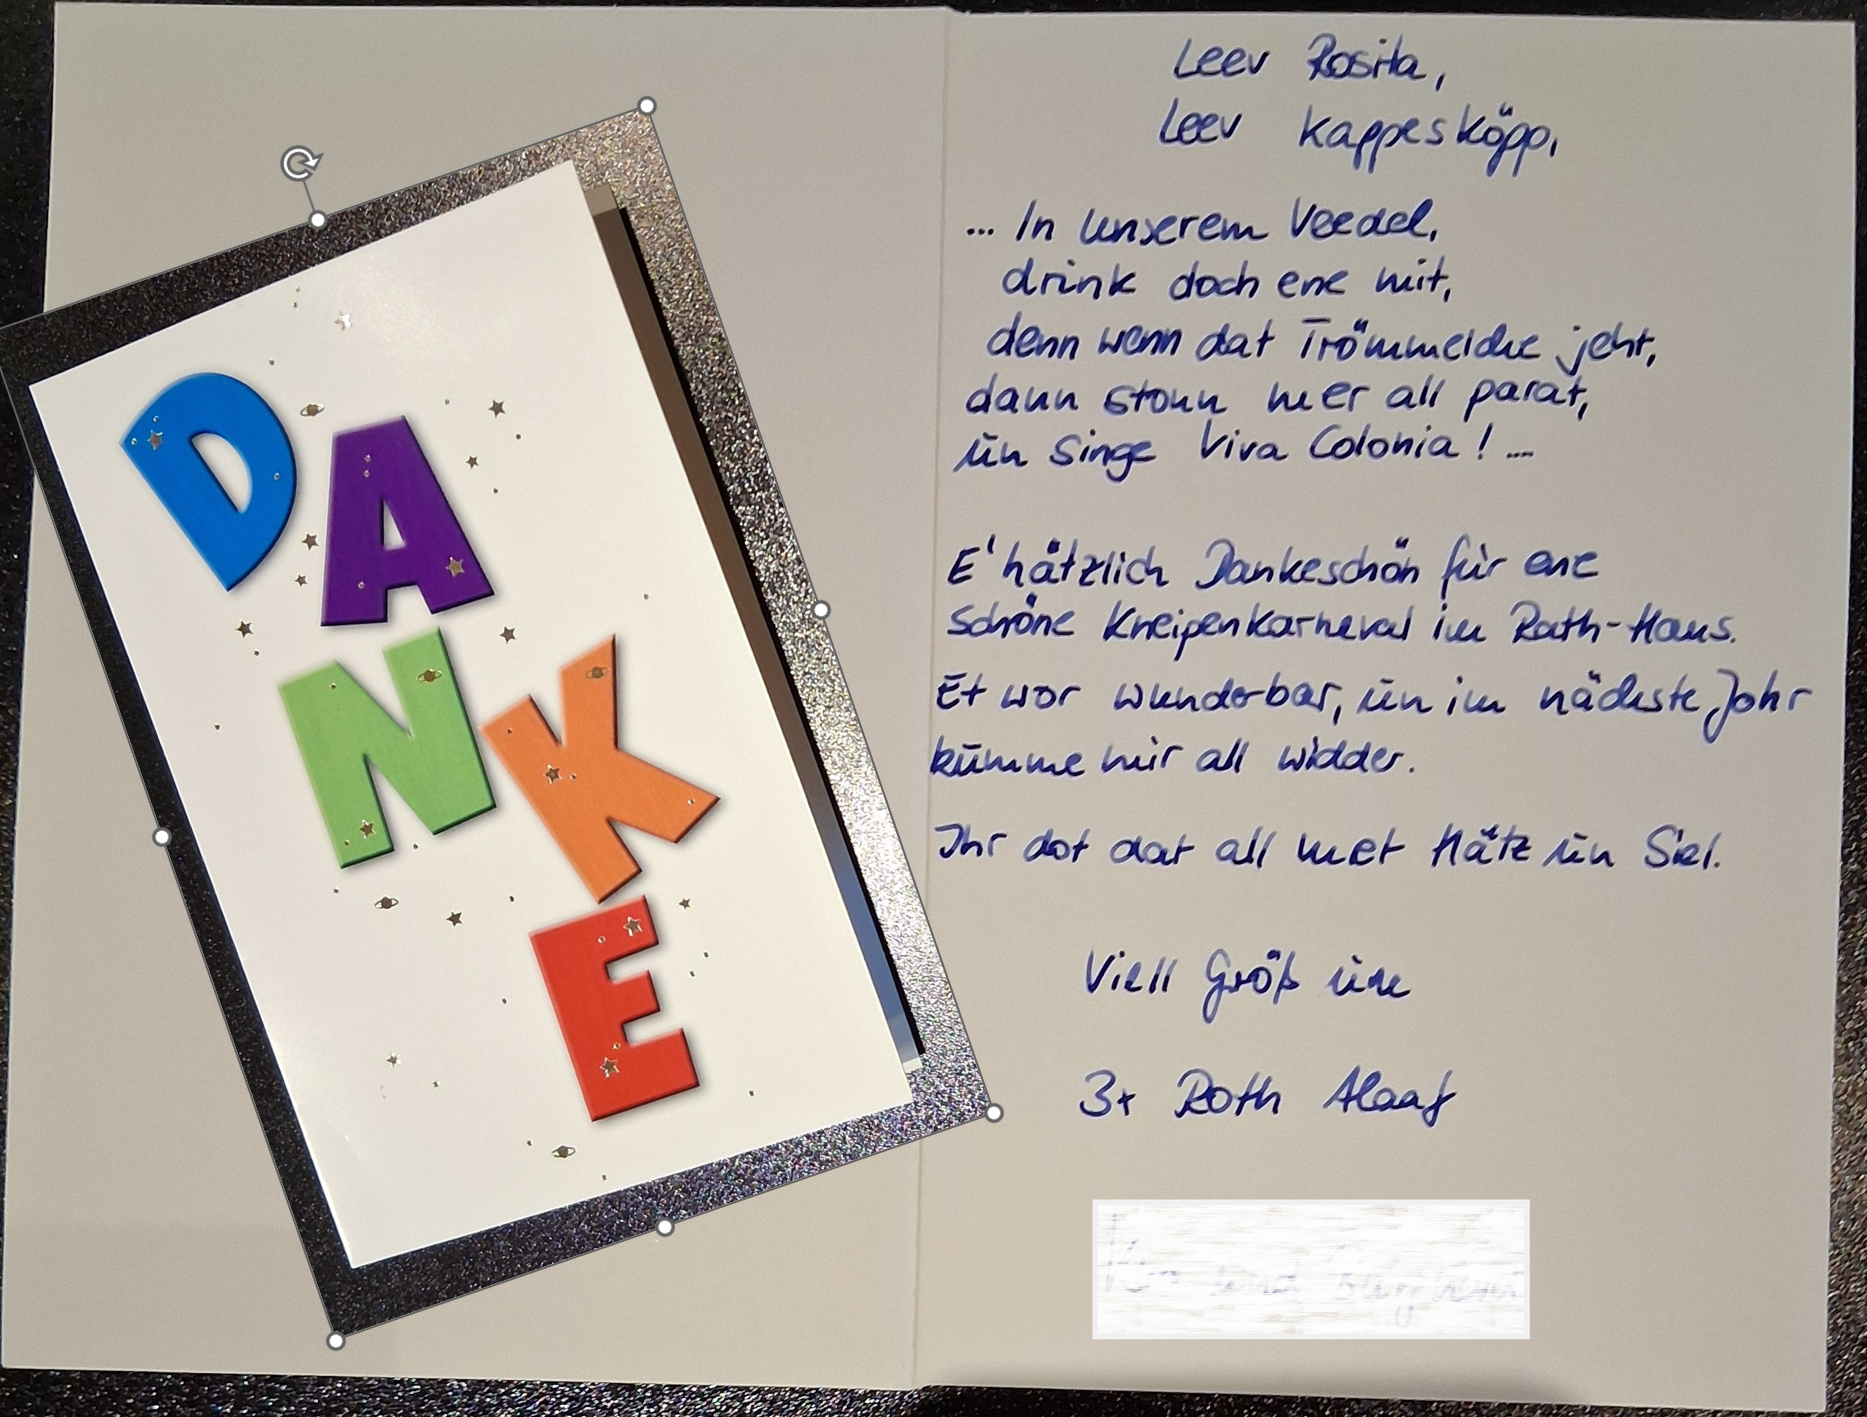 DANKE
Leev Rosita,
Leev Kappesköpp,
... In unserem Veedel,
drink doch ene mit,
denn wenn dat Trömmelche jeht,
dann stonn mer all parat,
un singe Viva Colonia! ...
E' hätzlich Dankeschön für ene
schöne Kneipenkarneval im Rath-Haus.
Et wor wunderbar, un im nächste Johr
kumme mir all widder.
Ihr dot dat all met Hätz un Siel.
Viell Größ un
3x Roth Alaaf